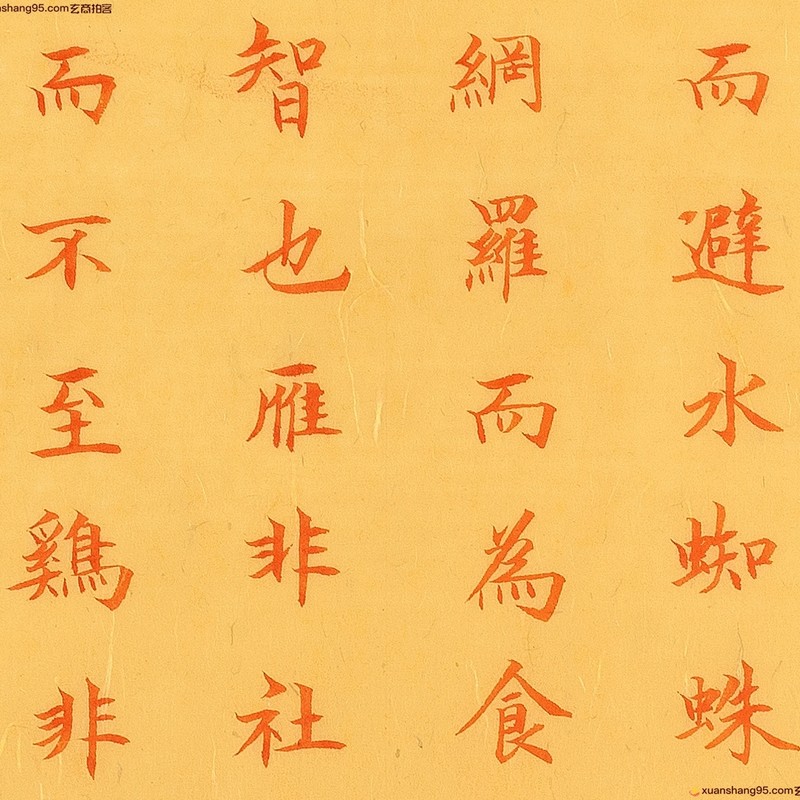 而避水蜘蛛
網羅而為食
智也雁非社
而不至鷄非
xuanshang95.com玄商拍客
xuanshang95.com玄